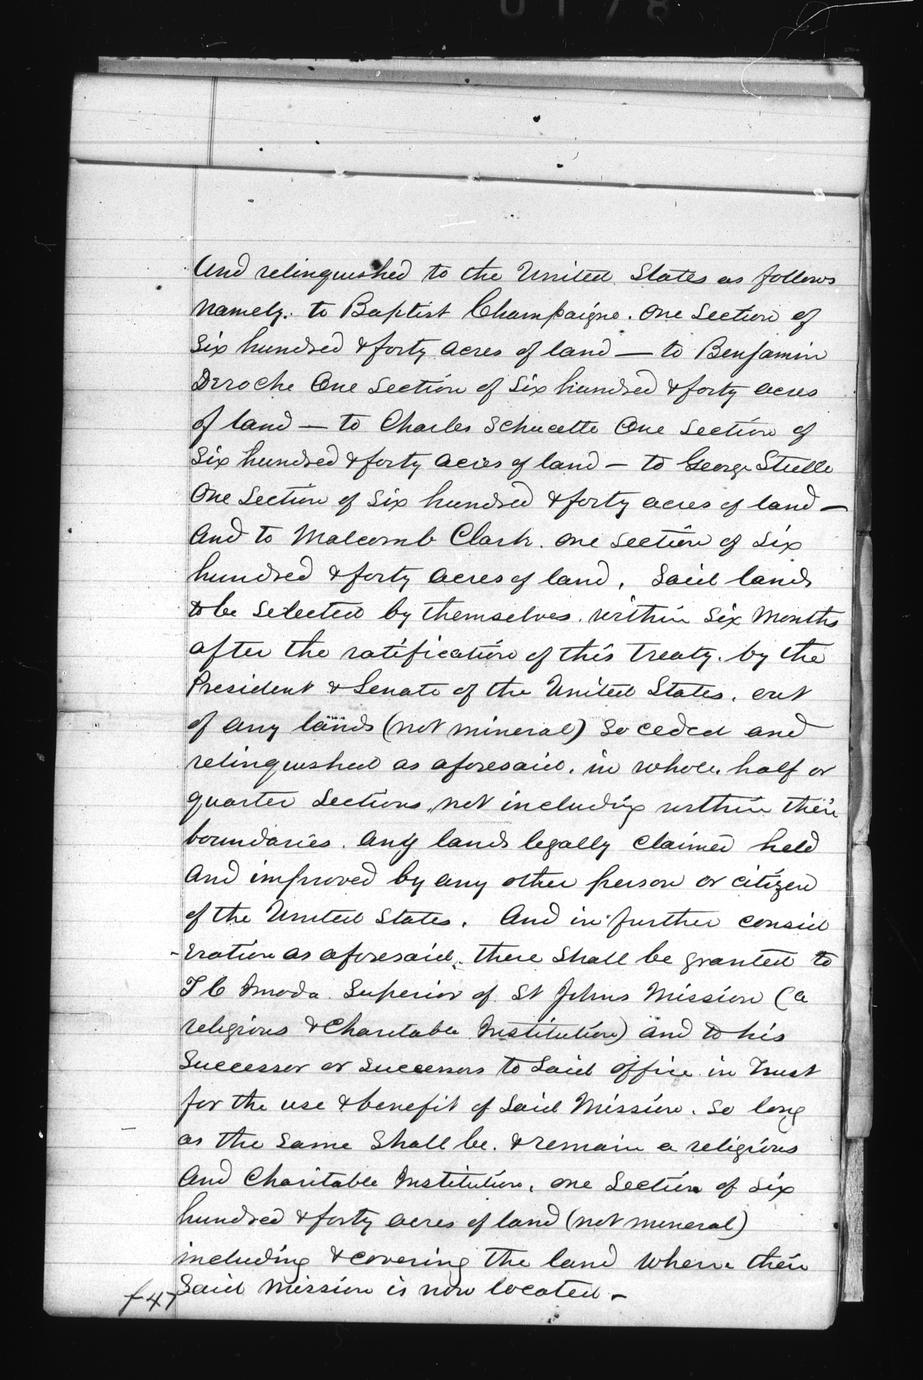 0178
And relinquished to the United States as follows
namely. to Baptist Champaigne. One Section of
Six hundred & forty acres of land — to Benjamin
Deroche One Section of Six hundred & forty acres
of land — to Charles Schucette One Section of
Six hundred & forty acres of land — to George Steelle
One Section of Six hundred & forty acres of land —
And to Malcomb Clark. one section of Six
hundred & forty acres of land. Said lands
to be selected by themselves. within Six Months
after the ratification of this treaty. by the
President & Senate of the United States. out
of any lands (not mineral) So ceded and
relinquished as aforesaid. in whole. half or
quarter Sections not including within their
boundaries. any lands legally claimed held
And improved by any other person or citizen
of the United States. And in further consid
-eration as aforesaid, there Shall be granted to
Imoda Superior of St Johns Mission (a
religious & Charitable Institution) and to his
Successor or successors to Said office in Trust
for the use & benefit of Said Mission. So long
as the Same Shall be. & remain a religious
And Charitable Institution, one Section of Six
hundred & forty acres of land (not mineral)
including & covering the land where their
Said Mission is now located —
f 47